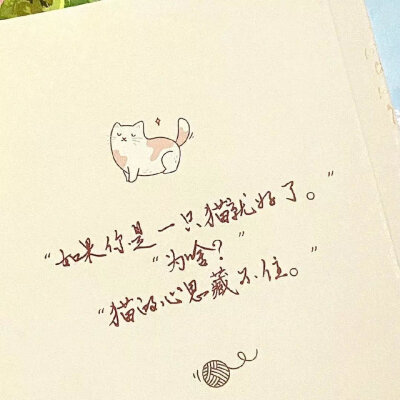 “如果你是一只猫就好了。”
“为啥？”
“猫的心思藏不住。”